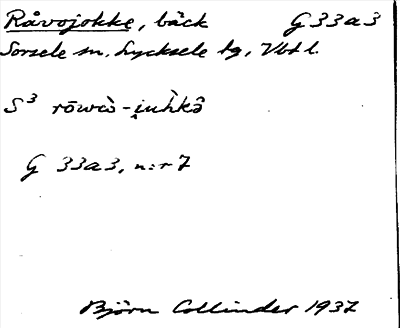 Råvojokke, bäck G 33a3
Sorsele sn. Lycksele lg, Vbtl.
S³ rōwò̄-i̯uh̀kə̑
G 33a3, n:r 7
Björn Collinder 1937